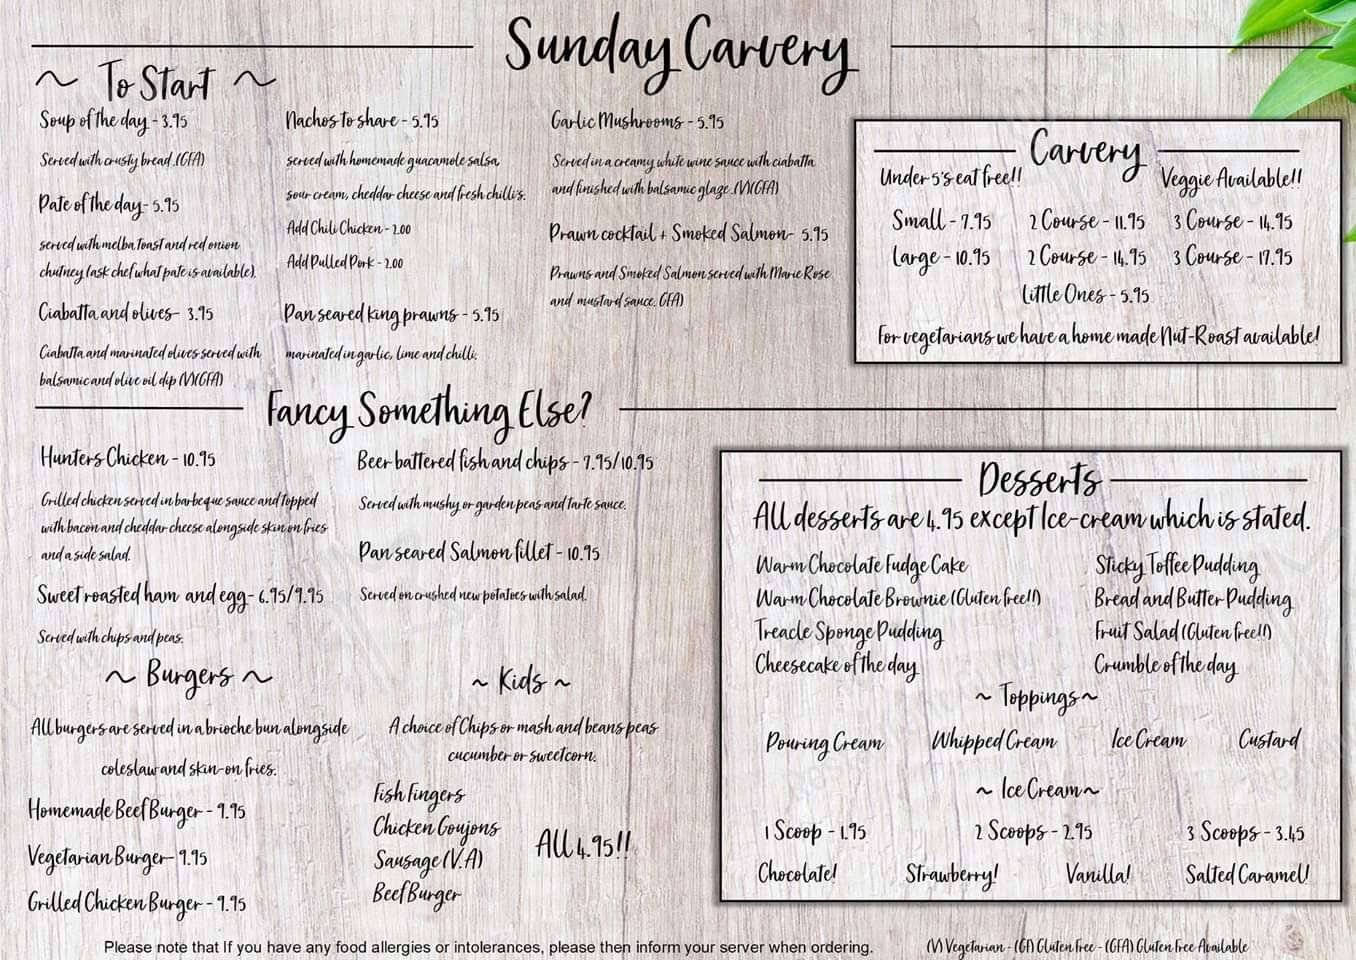 Sunday Carvery
~ To Start ~
Soup of the day - 3.95
Served with crusty bread .(GFA)
Pate of the day- 5.95
served with melba toast and red onion
chutney (ask chef what pate is available).
Ciabatta and olives- 3.95
Ciabatta and marinated olives served with
balsamic and olive oil dip (V)(GFA)
Nachos to share - 5.95
served with homemade guacamole salsa,
sour cream, cheddar cheese and fresh chilli's.
Add Chili Chicken - 2.00
Add Pulled Pork - 2.00
Pan seared king prawns - 5.95
marinated in garlic, lime and chilli.
Garlic Mushrooms - 5.95
Served in a creamy white wine sauce with ciabatta
and finished with balsamic glaze .(V)(GFA)
Prawn cocktail + Smoked Salmon- 5.95
Prawns and Smoked Salmon served with Marie Rose
and mustard sauce. GFA)
Carvery
Under 5's eat free!! Veggie Available!!
Small - 7.95 2 Course - 11.95 3 Course - 14.95
Large - 10.95 2 Course - 14.95 3 Course - 17.95
Little Ones - 5.95
For vegetarians we have a home made Nut-Roast available!
Fancy Something Else?
Hunters Chicken - 10.95
Grilled chicken served in barbeque sauce and topped
with bacon and cheddar cheese alongside skin on fries
and a side salad.
Sweet roasted ham and egg- 6.95/9.95
Served with chips and peas.
Beer battered fish and chips - 7.95/10.95
Served with mushy or garden peas and tarte sauce.
Pan seared Salmon fillet - 10.95
Served on crushed new potatoes with salad.
~ Burgers ~
All burgers are served in a brioche bun alongside
coleslaw and skin-on fries.
Homemade Beef Burger - 9.95
Vegetarian Burger- 9.95
Grilled Chicken Burger - 9.95
~ Kids ~
A choice of Chips or mash and beans peas
cucumber or sweetcorn.
Fish Fingers
Chicken Goujons
Sausage (V.A)
Beef Burger
All 4.95!!
Desserts
All desserts are 4.95 except Ice-cream which is stated.
Warm Chocolate Fudge Cake
Warm Chocolate Brownie (Gluten free!!)
Treacle Sponge Pudding
Cheesecake of the day
Sticky Toffee Pudding
Bread and Butter Pudding
Fruit Salad (Gluten free!!)
Crumble of the day
~ Toppings~
Pouring Cream Whipped Cream Ice Cream Custard
~ Ice Cream~
1 Scoop - 1.95 2 Scoops - 2.95 3 Scoops - 3.45
Chocolate! Strawberry! Vanilla! Salted Caramel!
Please note that If you have any food allergies or intolerances, please then inform your server when ordering.
(V) Vegetarian - (Gf) Gluten Free - (GFA) Gluten Free Available